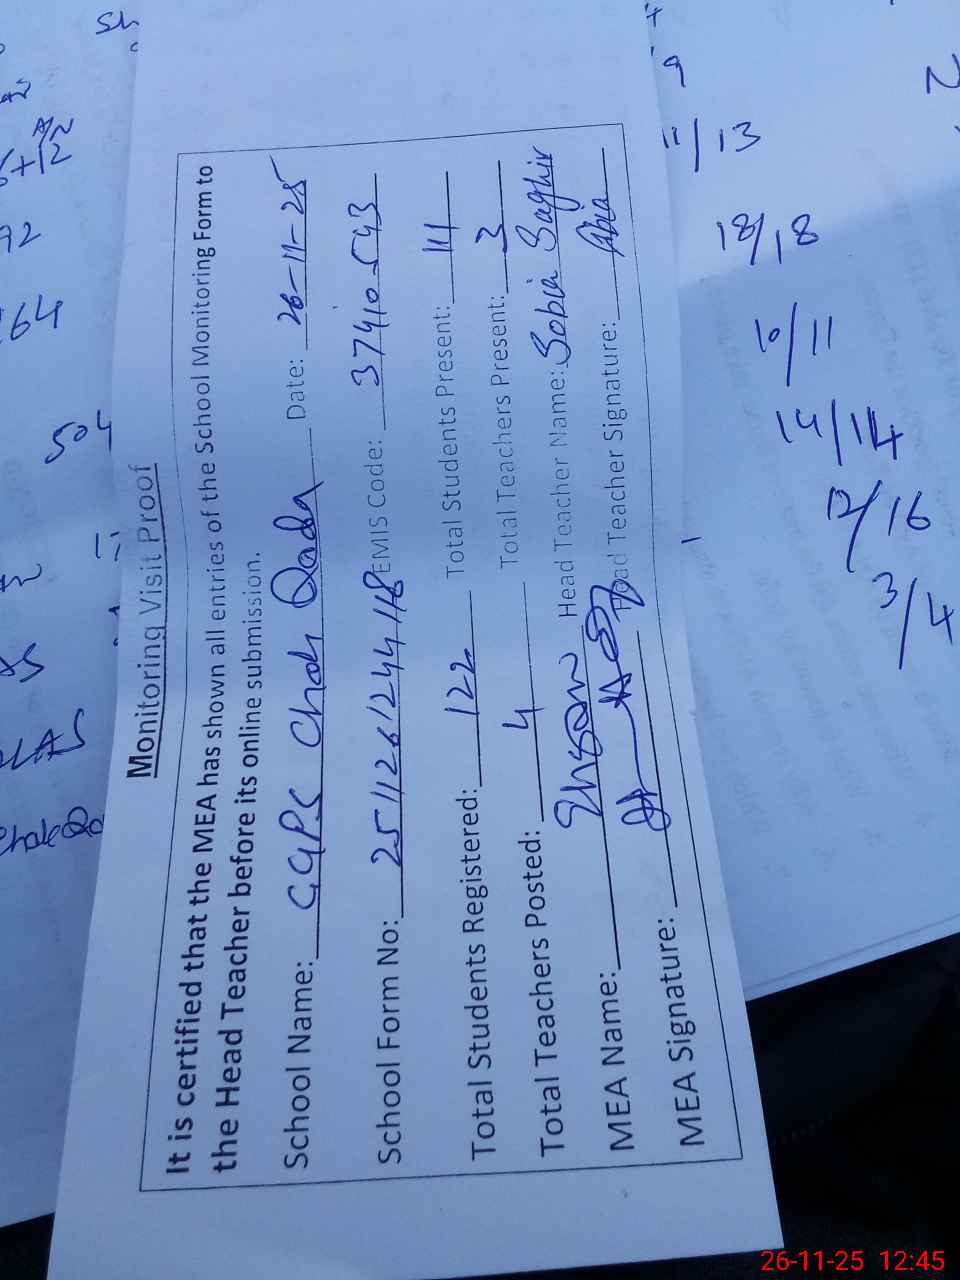 Monitoring Visit Proof
It is certified that the MEA has shown all entries of the School Monitoring Form to
the Head Teacher before its online submission.
School Name: GGPS Chak Qada Date: 26-11-25
School Form No: 251126124418 EMIS Code: 37410543
Total Students Registered: 122 Total Students Present: 111
Total Teachers Posted: 4 Total Teachers Present: 3
MEA Name: Head Teacher Name: Sobia Saghir
MEA Signature: Head Teacher Signature:
9
11/13
18/18
10/11
14/14
12/16
3/4
504
26-11-25 12:45